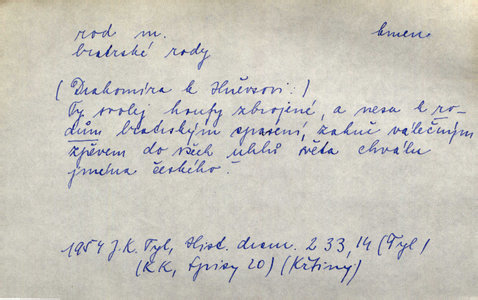 rod m. kmen
bratrské rody
(Drahomíra k Hněvsovi:)
Ty svolej houfy zbrojené, a nesa k ro-
dům bratrským spasení, zahuč válečným
zpěvem do všech uhlů světa chválu
jména českého.
1954 J. K. Tyl, Hist. dram. 2 33, 14 (Tyl)
(KK, Spisy 20) (Krtiny)